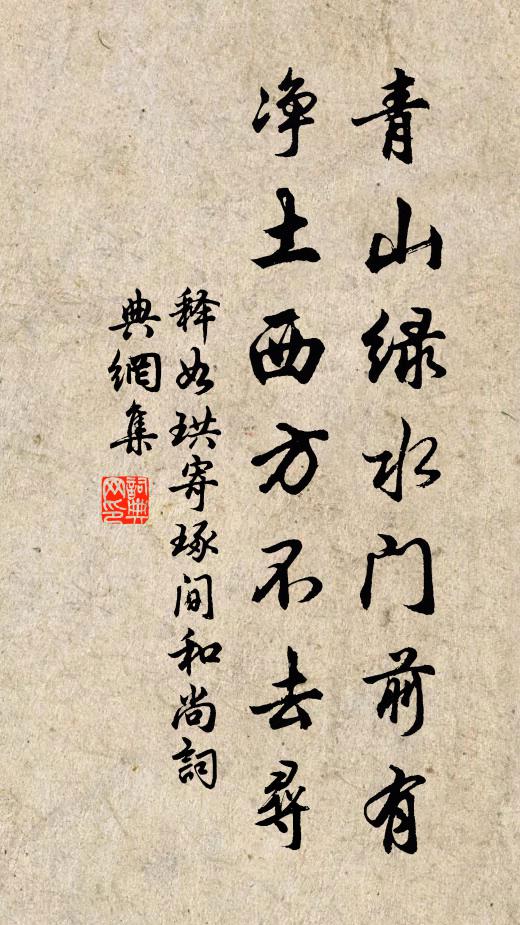 青山绿水门前有
净土西方不去寻
释如珙寄琢间和尚詞
典網集
詞典网印